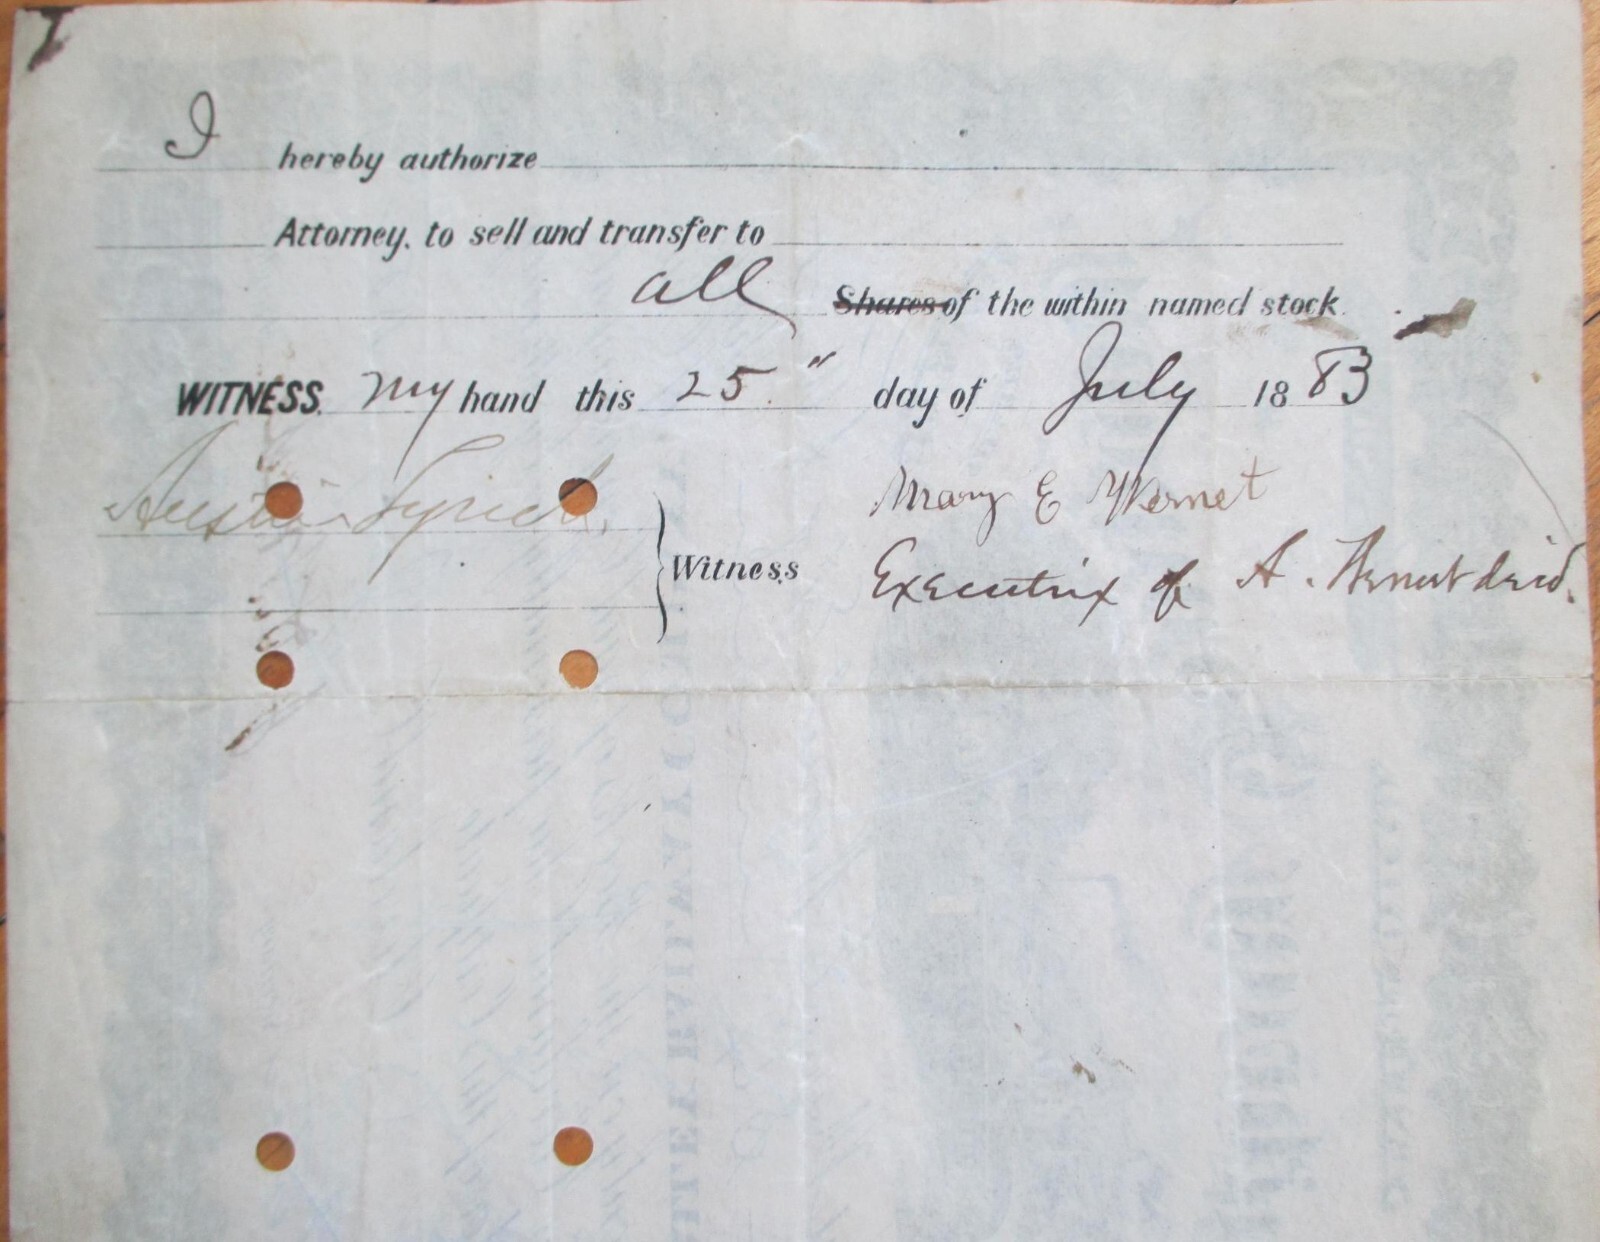 I hereby authorize
Attorney, to sell and transfer to
all Shares of the within named stock.
WITNESS. my hand this 25" day of July 1883
Austin Lynch.
Mary E Wernet
Witness
Executrix of A. Wernet decd.